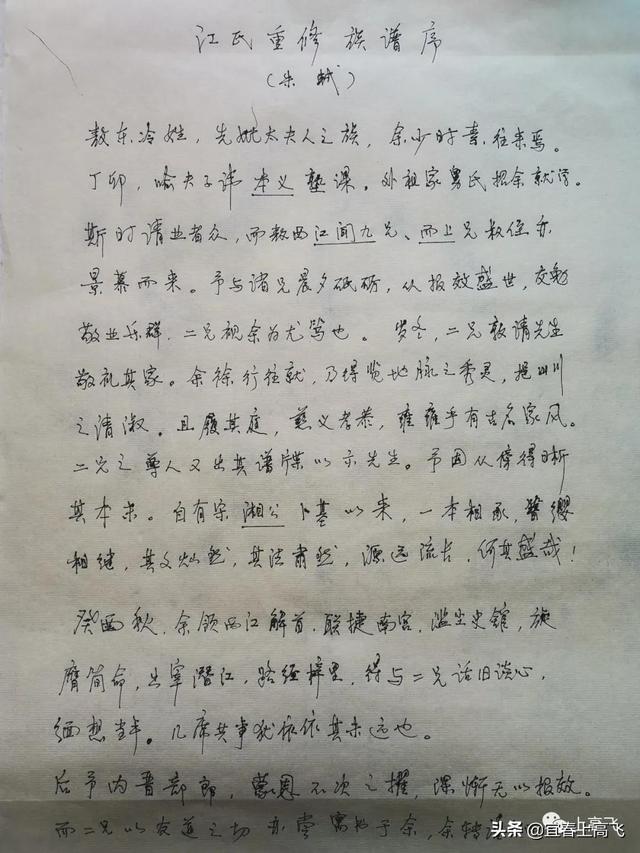 江氏重修族谱序
(朱轼)
敖东冷姓，先妣太夫人之族，余少时喜往来焉。
丁卯，喻夫子讳本义塾课。外祖家舅氏招余就学。
斯时请业者众，而敖西江闻九兄、而上兄叔侄亦
景慕而来。予与诸兄晨夕砥砺，以报效盛世，交勉
敬业乐群，二兄视余为尤笃也。岁冬，二兄敦请先生
敬礼其家。余徐行往就，乃得览地脉之秀灵，挹山川
之清淑。且履其庭，慈义孝恭，雍雍乎有古名家风。
二兄之尊人又出其谱牒以示先生。予因从傍得晰
其本末。自有宋湘公卜基以来，一本相承，簪缨
相继，其文灿然，其法肃然，源远流长，何其盛哉！
癸酉秋，余领西江解首，联捷南宫，滥尘史馆，旋
膺简命，出宰潜江，路经梓里，得与二兄话旧谈心，
缅想当年。几席共事犹依依其未远也。
后予内晋部郎，蒙恩不次之擢，深惭无以报效。
而二兄以友道之切亦尝寓书于余，余转
头条@宜春上高飞
上高飞